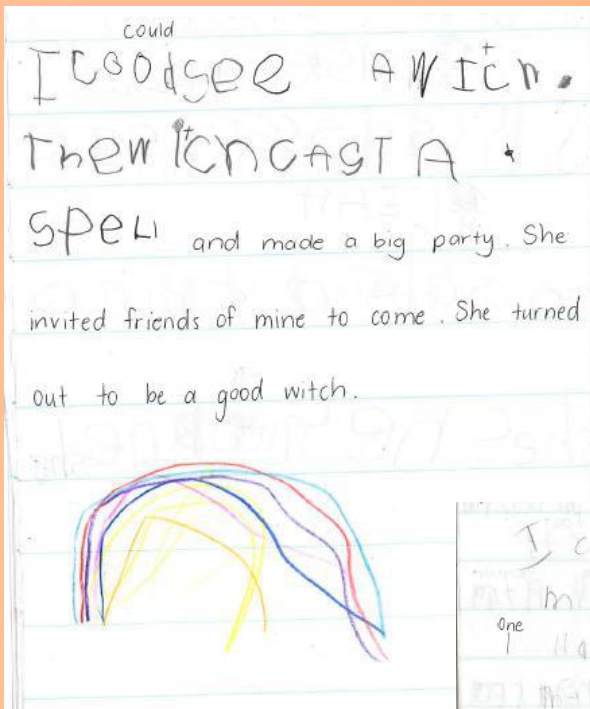 could
I cood see A WItch.
The WItch CAST A
SPell and made a big party. She
invited friends of mine to come. She turned
out to be a good witch.
I c
m
one